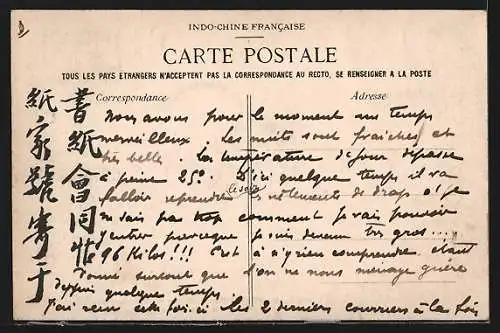 INDO-CHINE FRANÇAISE
CARTE POSTALE
TOUS LES PAYS ETRANGERS N'ACCEPTENT PAS LA CORRESPONDANCE AU RECTO, SE RENSEIGNER A LA POSTE
Correspondance
Adresse
Nous avons pour le moment un temps
merveilleux. Les nuits sont fraiches et
très belle. La température de jour dépasse
à peine 25°. D'ici quelque temps il va
falloir reprendre le soir les vêtements de drap et je
ne sais pas trop comment je vais pouvoir
y entrer parceque je suis devenu très gros...
96 Kilos!!! C'est à n'y rien comprendre étant
donné surtout que l'on ne nous ménage guère
depuis quelque temps.
J'ai reçu cette fois-ci les 2 derniers courriers à la fois
書紙會同
紙家號寄于